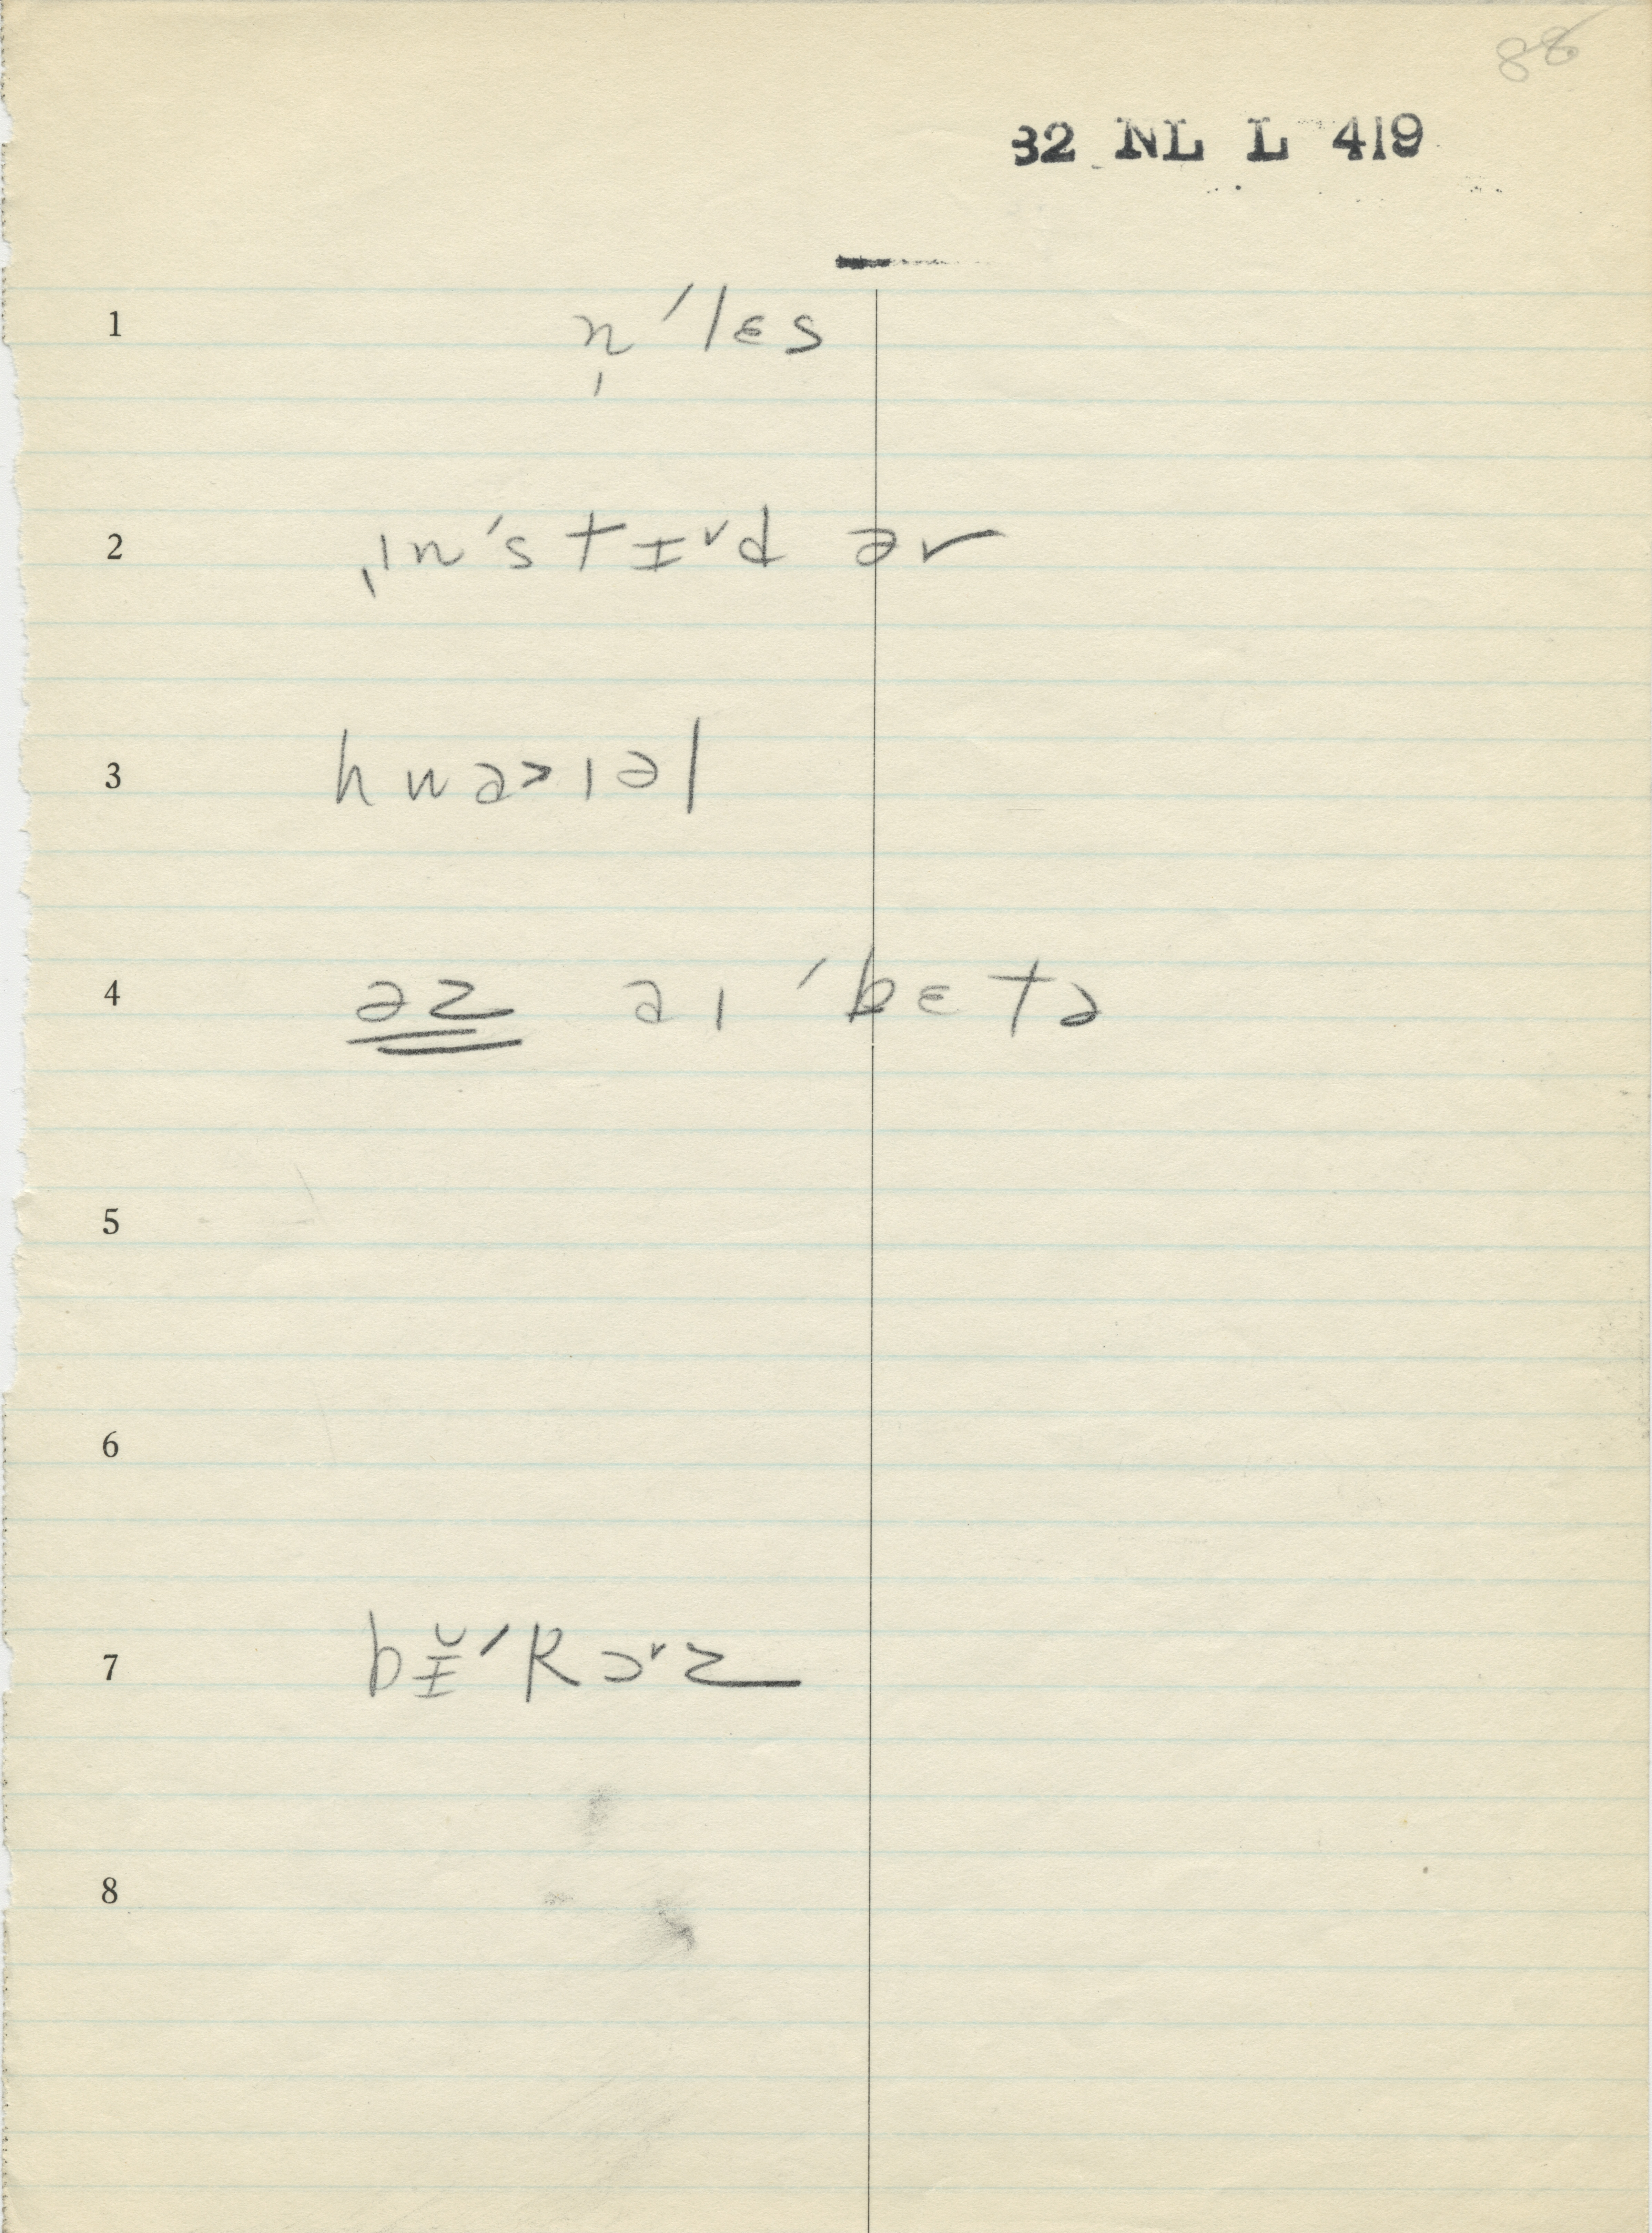 88
32 NL L 419
1 n̩ˈlɛs
2 ˌɪnˈstɪʳd ər
3 hwə>ɪəl
4 əz əɪ ˈbɛtə
5
6
7 bɪ̆ˈkɔʳz
8